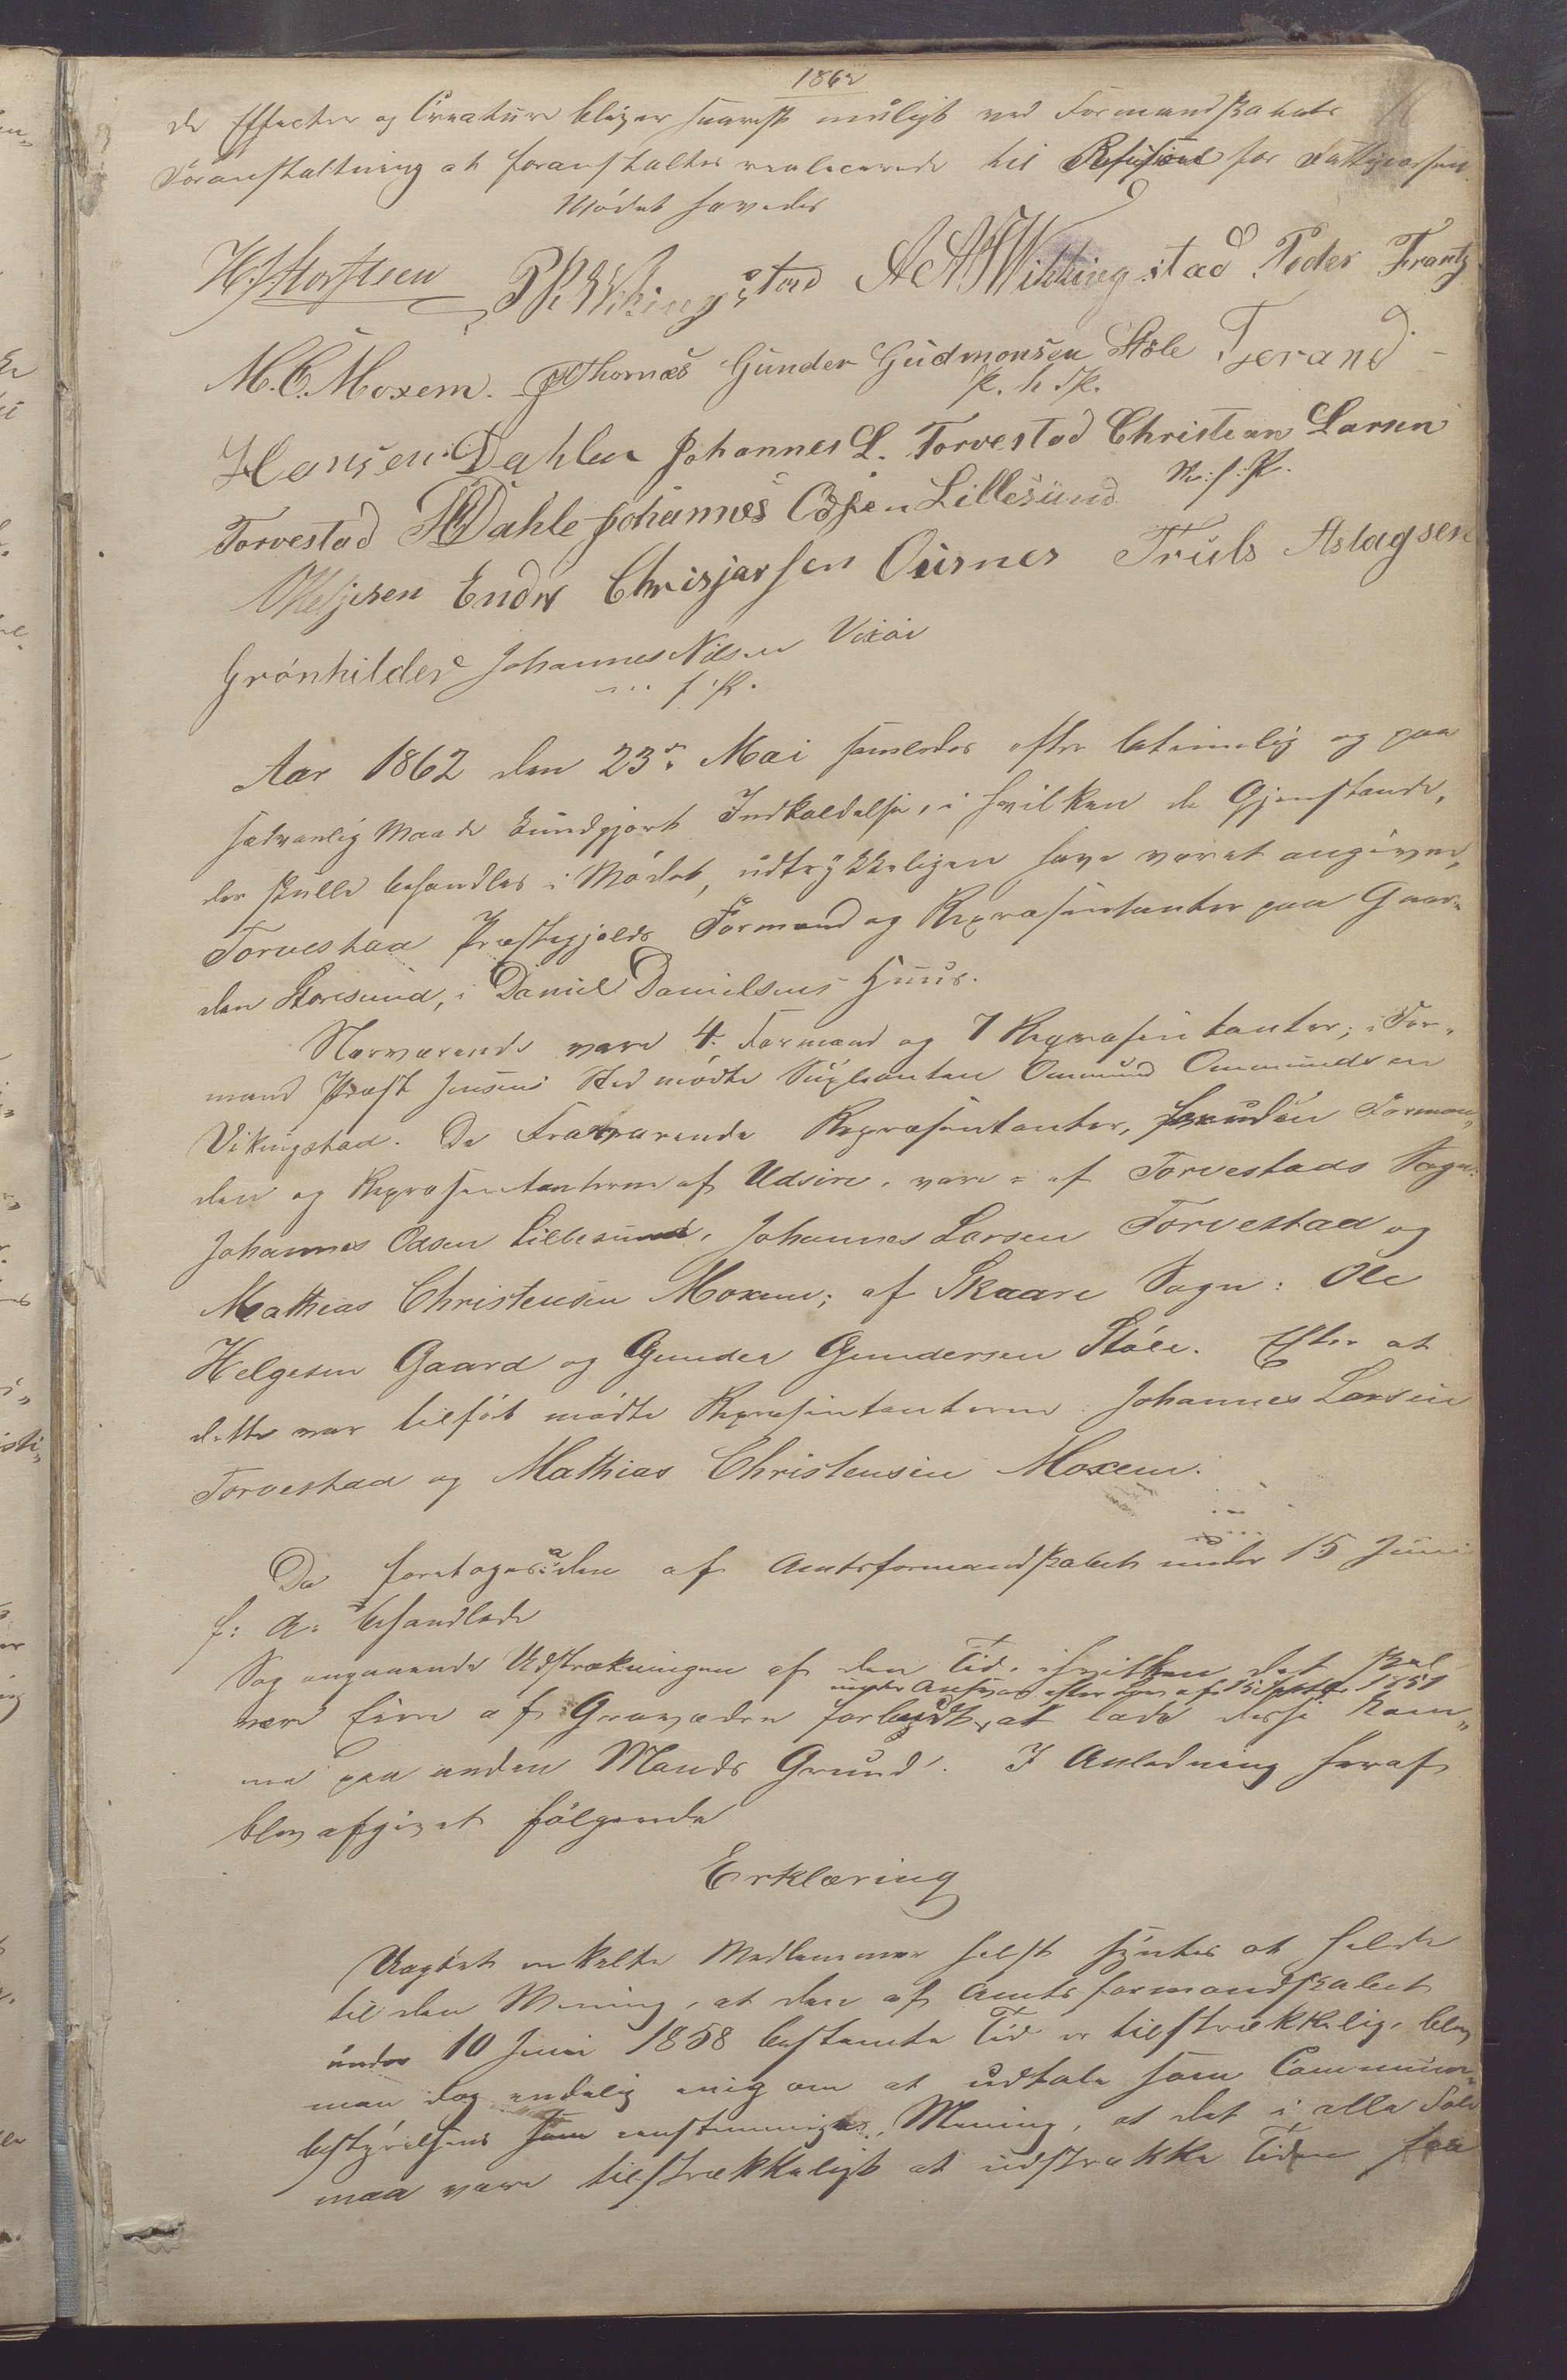 1862
de Effecter og Creature bliver snarest muligt ved Formandskabets
Foranstaltning at foranstaltes realiserede til Refusion for
Mødet hævedes
H. J. P. K. Vikingstad A A Wikkingstad Peder Frantz
M. C. Moxem. Thornæs Gunder Gudmonsen Støle Terand
Hansen Dahlen Johannes L. Torvestad Christian Larsen
m. f. P.
Torvestad Dahle Johannes Odsen Lillesund
OHeljesen Endre Chrisjansen Ousnes Truls Aslagsen
Grønhilder Johannes Nilsen Vixøi
m. f. P.
Aar 1862 den 23de Mai samledes efter betimelig og paa
sædvanlig Maade kundgjort Indkaldelse, i hvilken de Gjenstande,
der skulle behandles i Mødet, udtrykkeligen have været angivne,
Torvestad Præstegjelds Formænd og Repræsentanter paa Gaar-
den Storesund, i Daniel Danielsens Huus.
Nærværende vare 4 Formænd og 7 Repræsentanter; i For-
mand Præst Jensens Sted mødte Suppleanten Ommund Ommundsen
Vikingstad. De Fraværende Repræsentanter, foruden Forman-
den og Repræsentanterne af Udsire, vare = af Torvestads Sogn:
Johannes Odsen Lillesund, Johannes Larsen Torvestad og
Mathias Christensen Moxem; af Skaare Sogn: Ole
Helgesen Gaard og Gunder Gundersen Støle. Efter at
dette var tilført mødte Repræsentanterne Johannes Larsen
Torvestad og Mathias Christensen Moxem.
Da foretoges: a den af Amtsformandskabet under 15 Juni
f: A: behandlede
Sag angaaende Udstrækningen af den Tid, i hvilken det skal
under Ansvar efter Lov af 15 Septbr 1851
være Eiere af Gravæder forbudt, at lade disse kom-
me paa anden Mands Grund. I Anledning heraf
blev afgivet følgende
Erklæring
Uagtet enkelte Medlemmer helst syntes at helde
til den Mening, at den af Amtsformandskabet
under 10 Juni 1858 bestemte Tid er tilstrækkelig, blev
man dog endelig enig om at udtale som Commune-
bestyrelsens eenstemmige Mening, at det i alle Fald
maa være tilstrækkeligt at udstrække Tiden fra